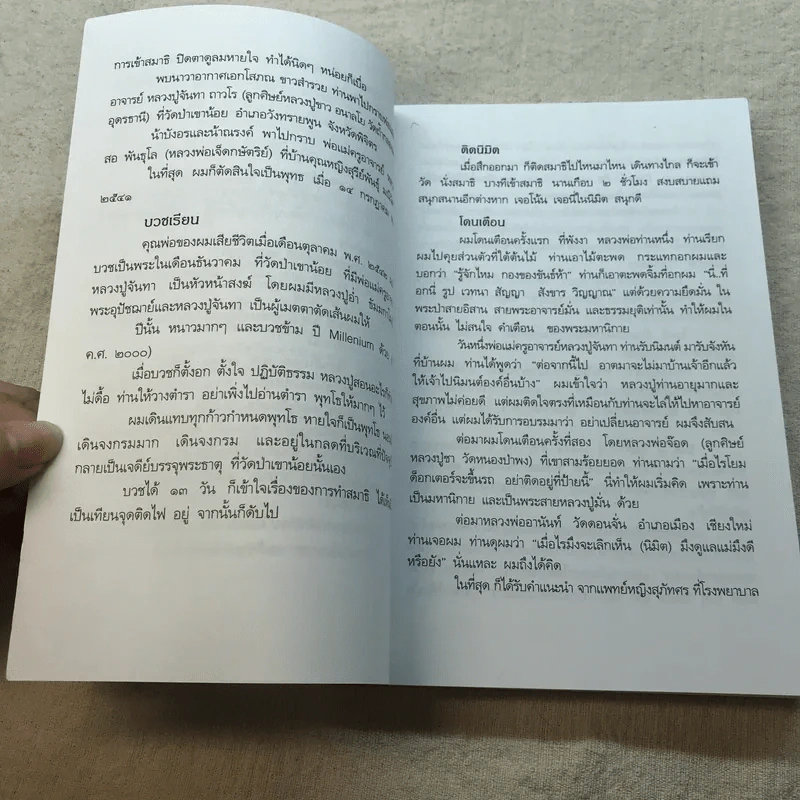 การเข้าสมาธิ ปิดตาดูลมหายใจ ทำได้นิดๆ หน่อยก็เบื่อ
พบนาวาอากาศเอกโสภณ ขาวสำรวย ท่านพาไปกราบ
อาจารย์ หลวงปู่จันทา ถาวโร (ลูกศิษย์หลวงปู่ขาว อนาลโย
อุดรธานี) ที่วัดป่าเขาน้อย อำเภอวังทรายพูน จังหวัดพิจิตร
น้าบังอรและน้าณรงค์ พาไปกราบ พ่อแม่ครูอาจารย์
สอ พันธุโล (หลวงพ่อเจ็ดกษัตริย์) ที่บ้านคุณหญิงสุรีย์พันธุ์
ในที่สุด ผมก็ตัดสินใจเป็นพุทธ เมื่อ ๑๔ กรกฎาคม
๒๕๔๑
บวชเรียน
คุณพ่อของผมเสียชีวิตเมื่อเดือนตุลาคม พ.ศ.
บวชเป็นพระในเดือนธันวาคม ที่วัดป่าเขาน้อย ที่มีพ่อแม่ครูอาจารย์
หลวงปู่จันทา เป็นหัวหน้าสงฆ์ โดยผมมีหลวงปู่อ่ำ
พระอุปัชฌาย์และหลวงปู่จันทา เป็นผู้เมตตาตัดเส้นผมให้
ปีนั้น หนาวมากๆ และบวชข้าม ปี Millenium ด้วย
ค.ศ. ๒๐๐๐)
เมื่อบวชก็ตั้งอก ตั้งใจ ปฏิบัติธรรม หลวงปู่สอนอะไร
ไม่ดื้อ ท่านให้วางตำรา อย่าเพิ่งไปอ่านตำรา พุทโธให้มากๆ ไว้
ผมเดินแทบทุกก้าวกำหนดพุทโธ หายใจก็เป็นพุทโธ
เดินจงกรมมาก เดินจงกรม และอยู่ในกลดที่บริเวณที่
กลายเป็นเจดีย์บรรจุพระธาตุ ที่วัดป่าเขาน้อยนั้นเอง
บวชได้ ๑๓ วัน ก็เข้าใจเรื่องของการทำสมาธิ
เป็นเทียนจุดติดไฟ อยู่ จากนั้นก็ดับไป
ติดนิมิต
เมื่อสึกออกมา ก็ติดสมาธิไปไหนมาไหน เดินทางไกล ก็จะเข้า
วัด นั่งสมาธิ บางทีเข้าสมาธิ นานเกือบ ๒ ชั่วโมง สงบสบายแถม
สนุกสนานอีกต่างหาก เจอโน้น เจอนี่ในนิมิต สนุกดี
โดนเตือน
ผมโดนเตือนครั้งแรก ที่พังงา หลวงพ่อท่านหนึ่ง ท่านเรียก
ผมไปคุยส่วนตัวที่ใต้ต้นไม้ ท่านเอาไม้ตะพต กระแทกอกผมและ
บอกว่า "รู้จักไหม กองของขันธ์ห้า" ท่านก็เอาตะพตจิ้มที่อกผม "นี่..ที่
อกนี่ รูป เวทนา สัญญา สังขาร วิญญาณ" แต่ด้วยความยึดมั่น ใน
พระป่าสายอีสาน สายพระอาจารย์มั่น และธรรมยุติเท่านั้น ทำให้ผมใน
ตอนนั้น ไม่สนใจ คำเตือน ของพระมหานิกาย
วันหนึ่งพ่อแม่ครูอาจารย์หลวงปู่จันทา ท่านรับนิมนต์ มารับจังหัน
ที่บ้านผม ท่านได้พูดว่า "ต่อจากนี้ไป อาตมาจะไม่มาบ้านเจ้าอีกแล้ว
ให้เจ้าไปนิมนต์องค์อื่นบ้าง" ผมเข้าใจว่า หลวงปู่ท่านอายุมากและ
สุขภาพไม่ค่อยดี แต่ผมติดใจตรงที่เหมือนกับท่านจะไล่ให้ไปหาอาจารย์
องค์อื่น แต่ผมได้รับการอบรมมาว่า อย่าเปลี่ยนอาจารย์ ผมจึงสับสน
ต่อมาผมโดนเตือนครั้งที่สอง โดยหลวงพ่อจ๊อด (ลูกศิษย์
หลวงปู่ชา วัดหนองป่าพง) ที่เขาสามร้อยยอด ท่านถามว่า "เมื่อไรโยม
ด็อกเตอร์จะขึ้นรถ อย่าติดอยู่ที่ป้ายนี้" นี่ทำให้ผมเริ่มคิด เพราะท่าน
เป็นมหานิกาย และเป็นพระสายหลวงปู่มั่น ด้วย
ต่อมาหลวงพ่ออานันท์ วัดดอนจั่น อำเภอเมือง เชียงใหม่
ท่านเจอผม ท่านดุผมว่า "เมื่อไรมึงจะเลิกเห็น (นิมิต) มึงดูแลแม่มึงดี
หรือยัง" นั่นแหละ ผมถึงได้คิด
ในที่สุด ก็ได้รับคำแนะนำ จากแพทย์หญิงสุภัทศร ที่โรงพยาบาล